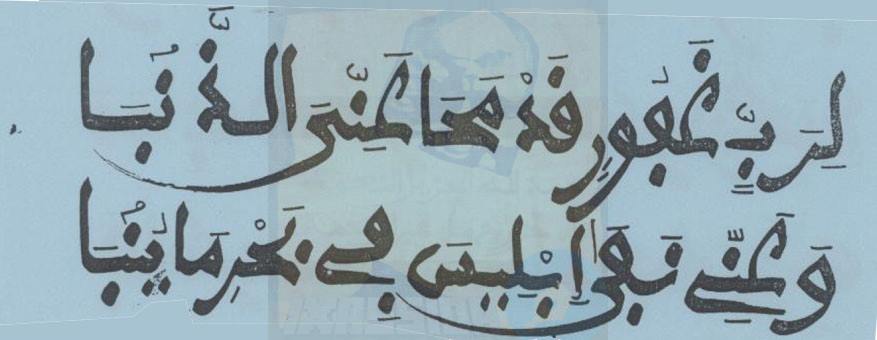 لِرَبٍّ غَفُورٍ قَدْ مَحَا عَنِّيَ الذَّنْبَا
وَعَنِّي نَفَى إِبْلِيسَ فِي بَحْرِ مَا يُنْبَا